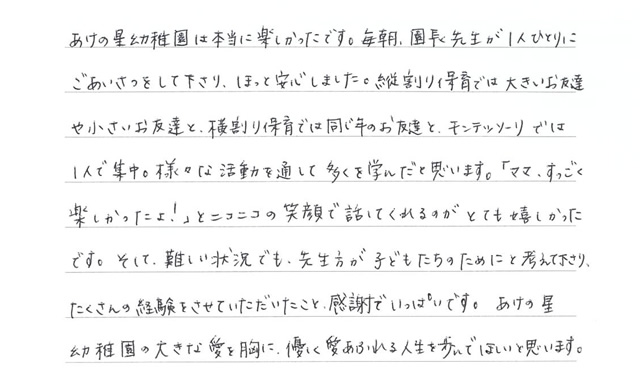 あけの星幼稚園は本当に楽しかったです。毎朝、園長先生が1人ひとりに
ごあいさつをして下さり、ほっと安心しました。縦割り保育では大きいお友達
や小さいお友達と、横割り保育では同じ年のお友達と、モンテッソーリでは
1人で集中。様々な活動を通して多くを学んだと思います。「ママ、すっごく
楽しかったよ!」とニコニコの笑顔で話してくれるのがとても嬉しかった
です。そして、難しい状況でも、先生方が子どもたちのためにと考えて下さり、
たくさんの経験をさせていただいたこと、感謝でいっぱいです。あけの星
幼稚園の大きな愛を胸に、優しく愛あふれる人生を歩んでほしいと思います。